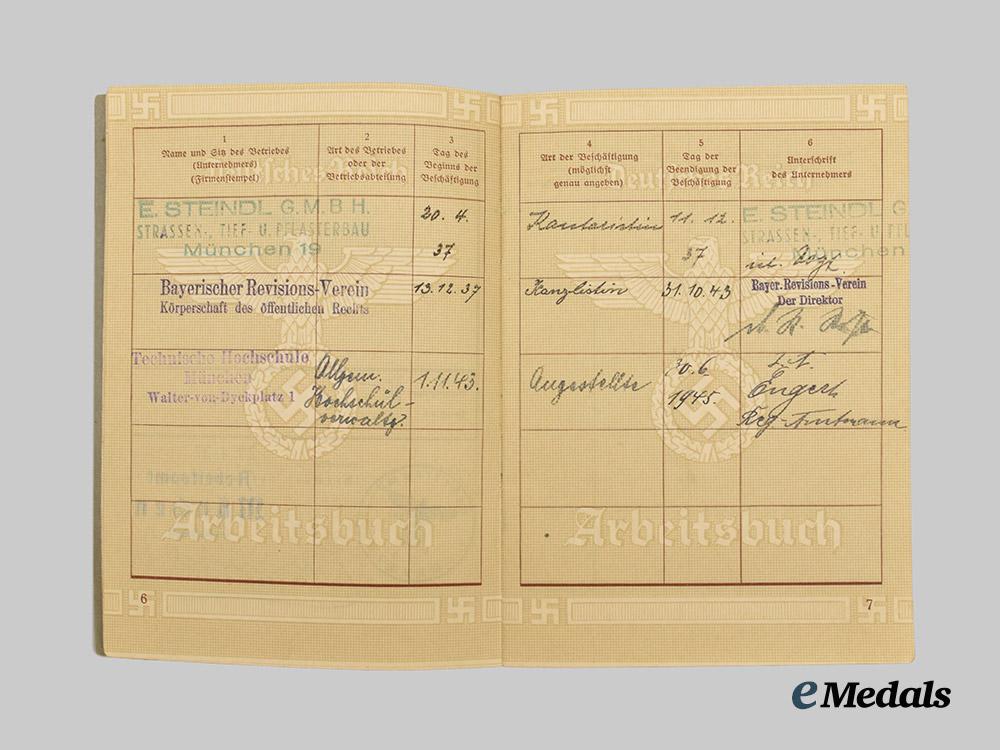 1
Name und Sitz des Betriebes
(Unternehmers)
(Firmenstempel)
2
Art des Betriebes
oder der
Betriebsabteilung
3
Tag des
Beginns der
Beschäftigung
E. STEINDL G.M.B.H.
STRASSEN-, TIEF- U. PFLASTERBAU
München 19
20. 4.
37
Bayerischer Revisions-Verein
Körperschaft des öffentlichen Rechts
13.12.37
Technische Hochschule
München
Walter-von-Dyckplatz 1
Allgem.
Hochschul-
verwaltg.
1.11.43.
Arbeitsbuch
6
4
Art der Beschäftigung
(möglichst
genau angeben)
5
Tag der
Beendigung der
Beschäftigung
6
Unterschrift
des Unternehmers
Deutsches Reich
Kontoristin
11. 12.
37
E. STEINDL G
STRASSEN-, TIEF- U. PFL
München
Kanzlistin
31.10.43
Bayer. Revisions-Verein
Der Direktor
Angestellte
30.6.
1945.
Engert
Reg. Amtmann
Arbeitsbuch
7
eMedals